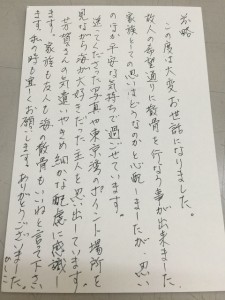 前略
この度は大変お世話になりました。
故人の希望通りに散骨を行なう事が出来ました。
家族としての思いはどうなのかと心配しましたが、思い
のほか平安な気持ちで過ごせています。
送ってくださった写真や東京湾のポイント場所を
見ながら海が大好きだった主人を思い出しています。
芳賀さんの気遣いやきめ細かな配慮に感謝し
ます。家族も友人も海の散骨もいいねと言って下さい
ます。私の時も宜しくお願します。ありがとうございました。
かしこ